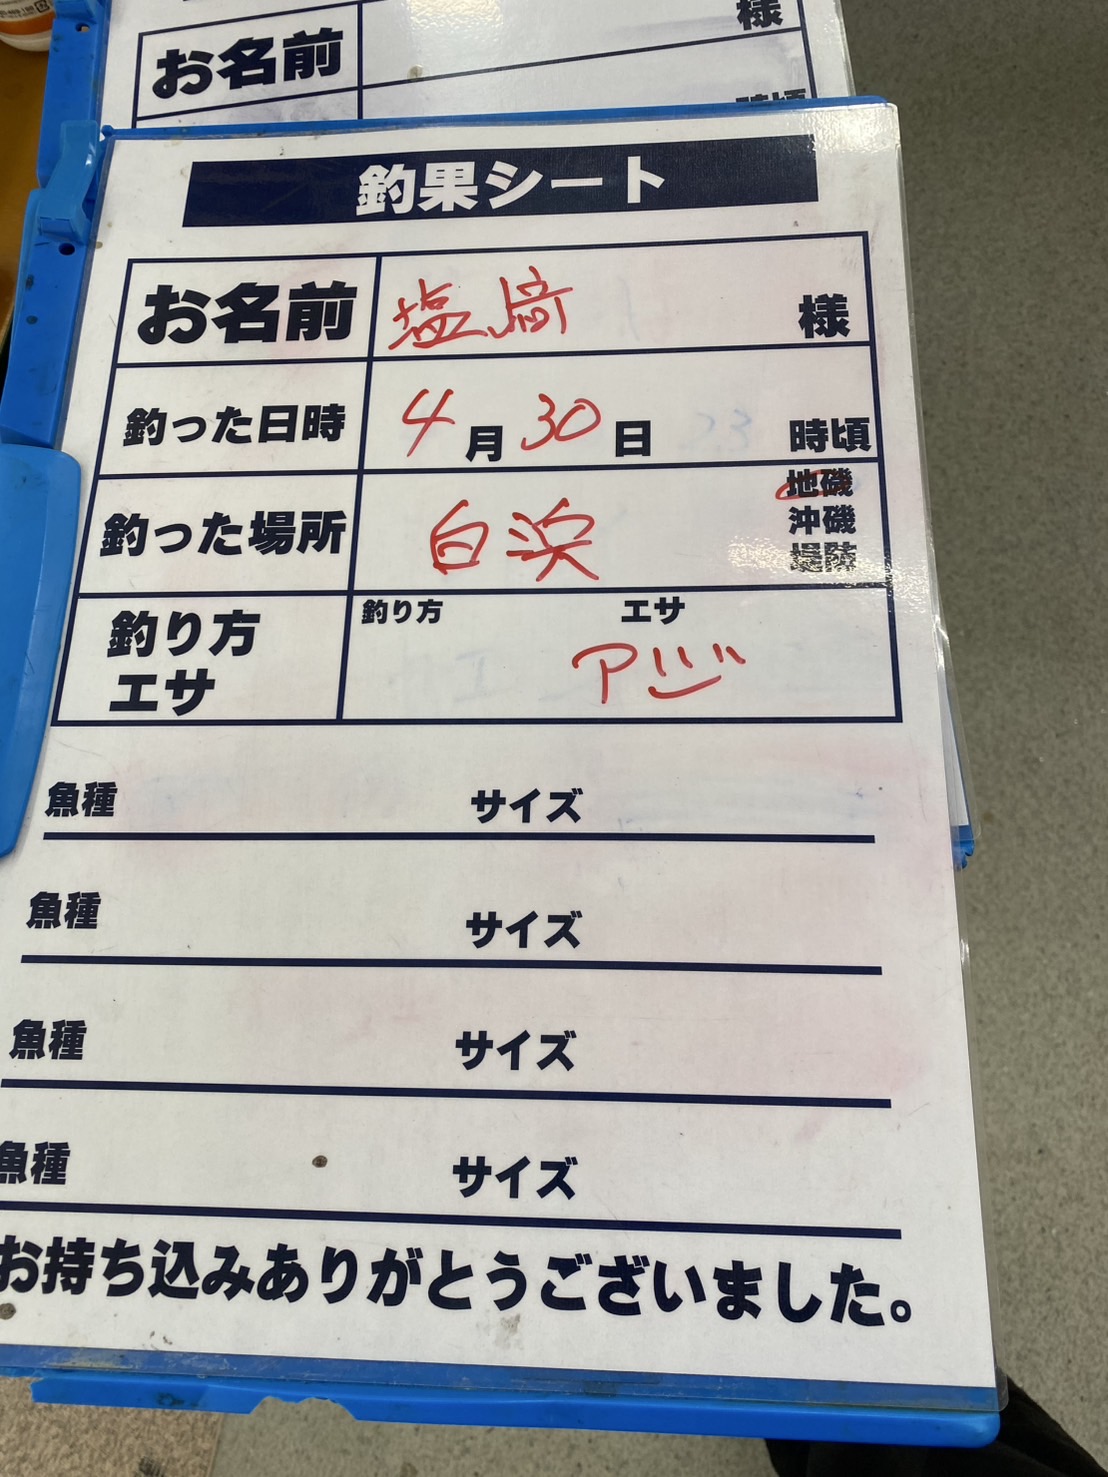 様
お名前
釣果シート
お名前 塩崎 様
釣った日時 4月30日 時頃
釣った場所 白浜 地磯
沖磯
堤防
釣り方 エサ
釣り方
エサ
アジ
魚種 サイズ
魚種 サイズ
魚種 サイズ
魚種 サイズ
お持ち込みありがとうございました。